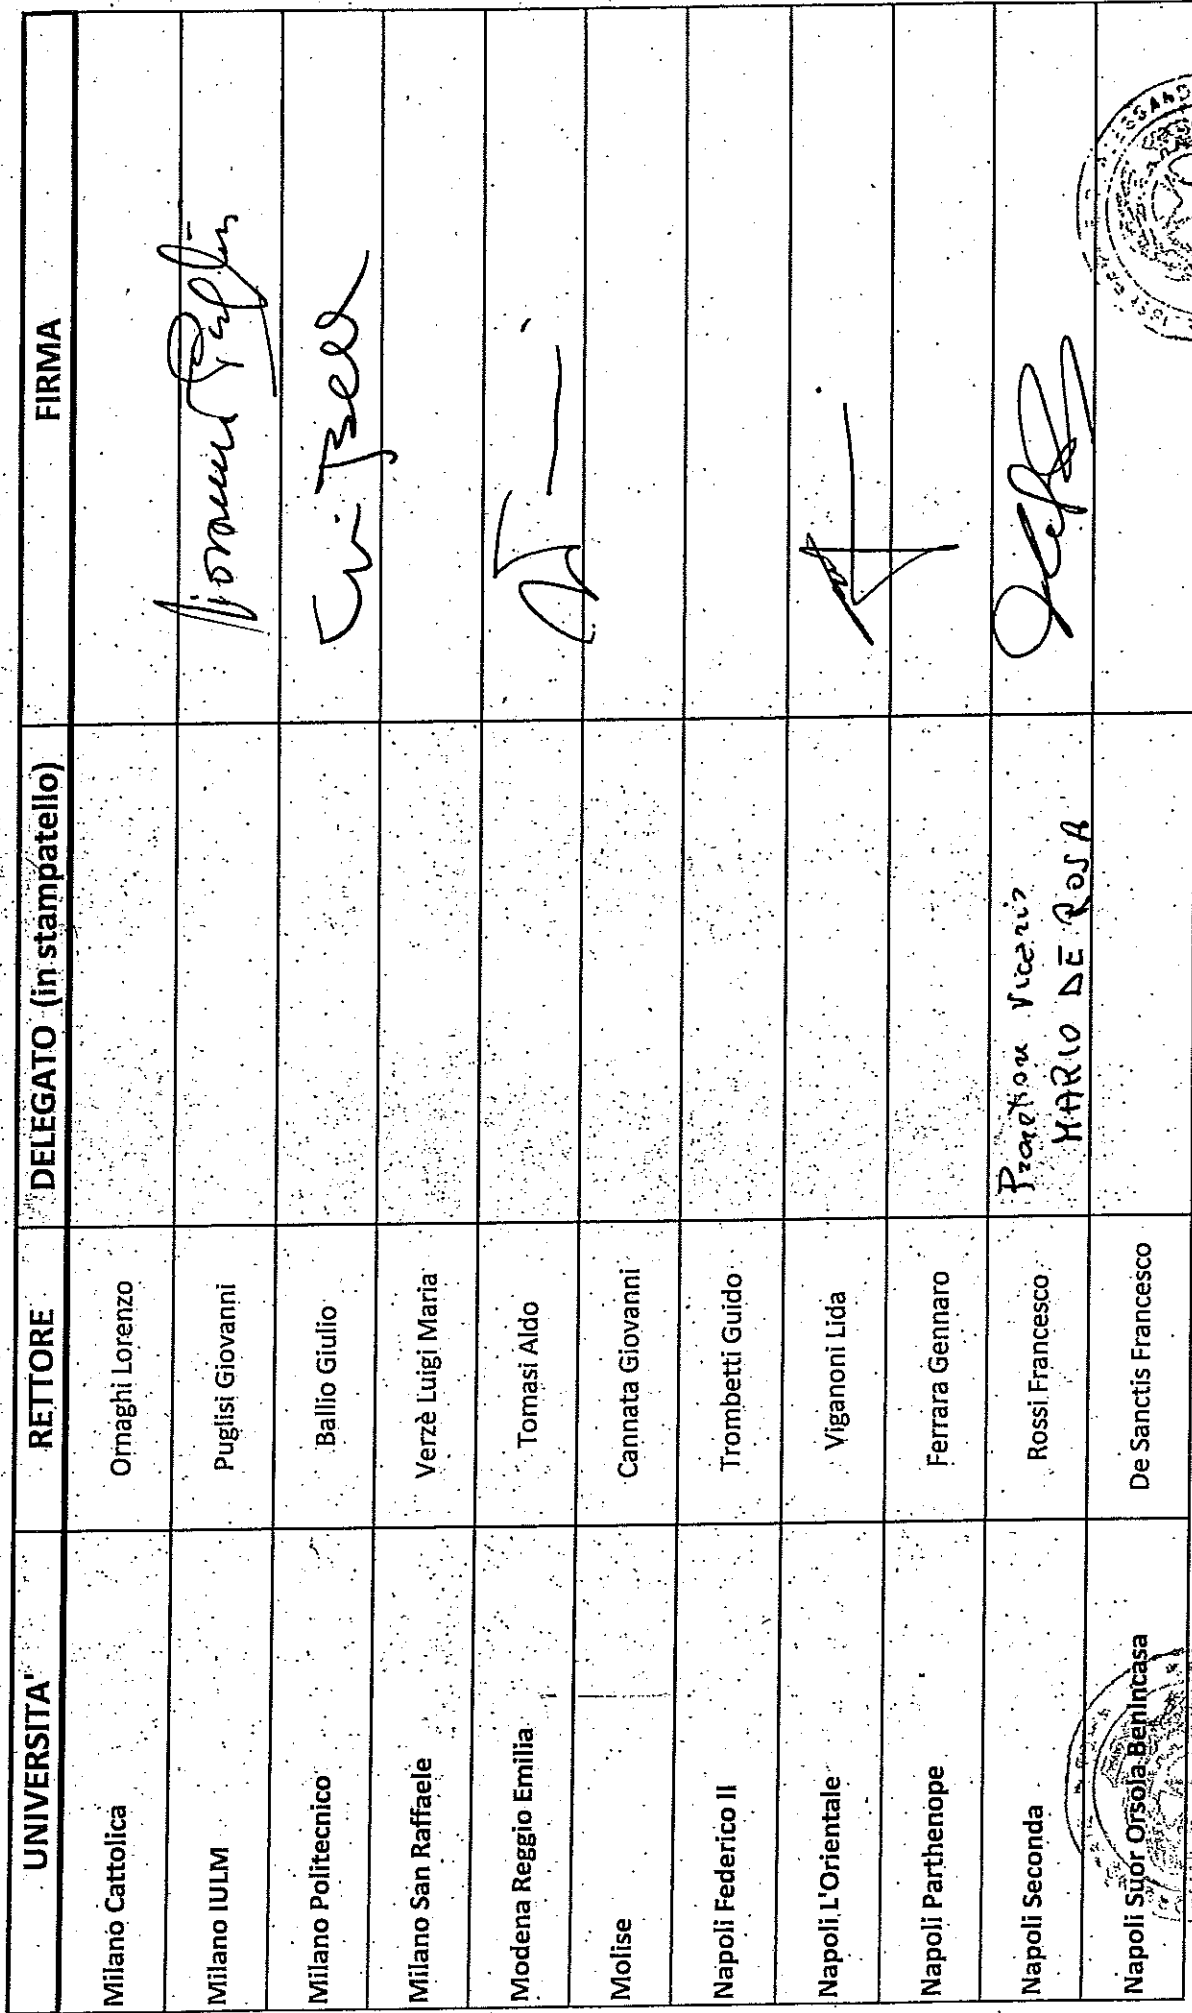 UNIVERSITA' RETTORE DELEGATO (in stampatello) FIRMA
Milano Cattolica Ornaghi Lorenzo
Milano IULM Puglisi Giovanni
Milano Politecnico Ballio Giulio
Milano San Raffaele Verzè Luigi Maria
Modena Reggio Emilia Tomasi Aldo
Molise Cannata Giovanni
Napoli Federico II Trombetti Guido
Napoli L'Orientale Viganoni Lida
Napoli Parthenope Ferrara Gennaro
Napoli Seconda Rossi Francesco Prorettore Vicario
MARIO DE ROSA
Napoli Suor Orsola Benincasa De Sanctis Francesco